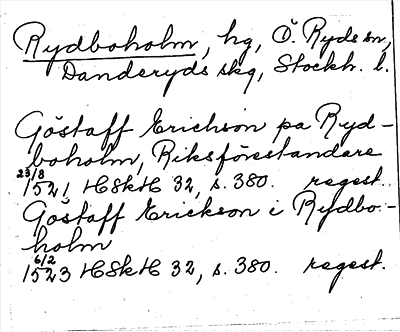 Rydboholm, hg, Ö. Ryds sn,
Danderyds skg, Stockh. l.
Göstaff Erichson pa Ryd-
boholm, Riksförestandare
23/8
1521 HSkH 32, s. 380. regest.
Göstaff Erickson i Rydbo-
holm
6/2
1523 HSkH 32, s. 380. regest.